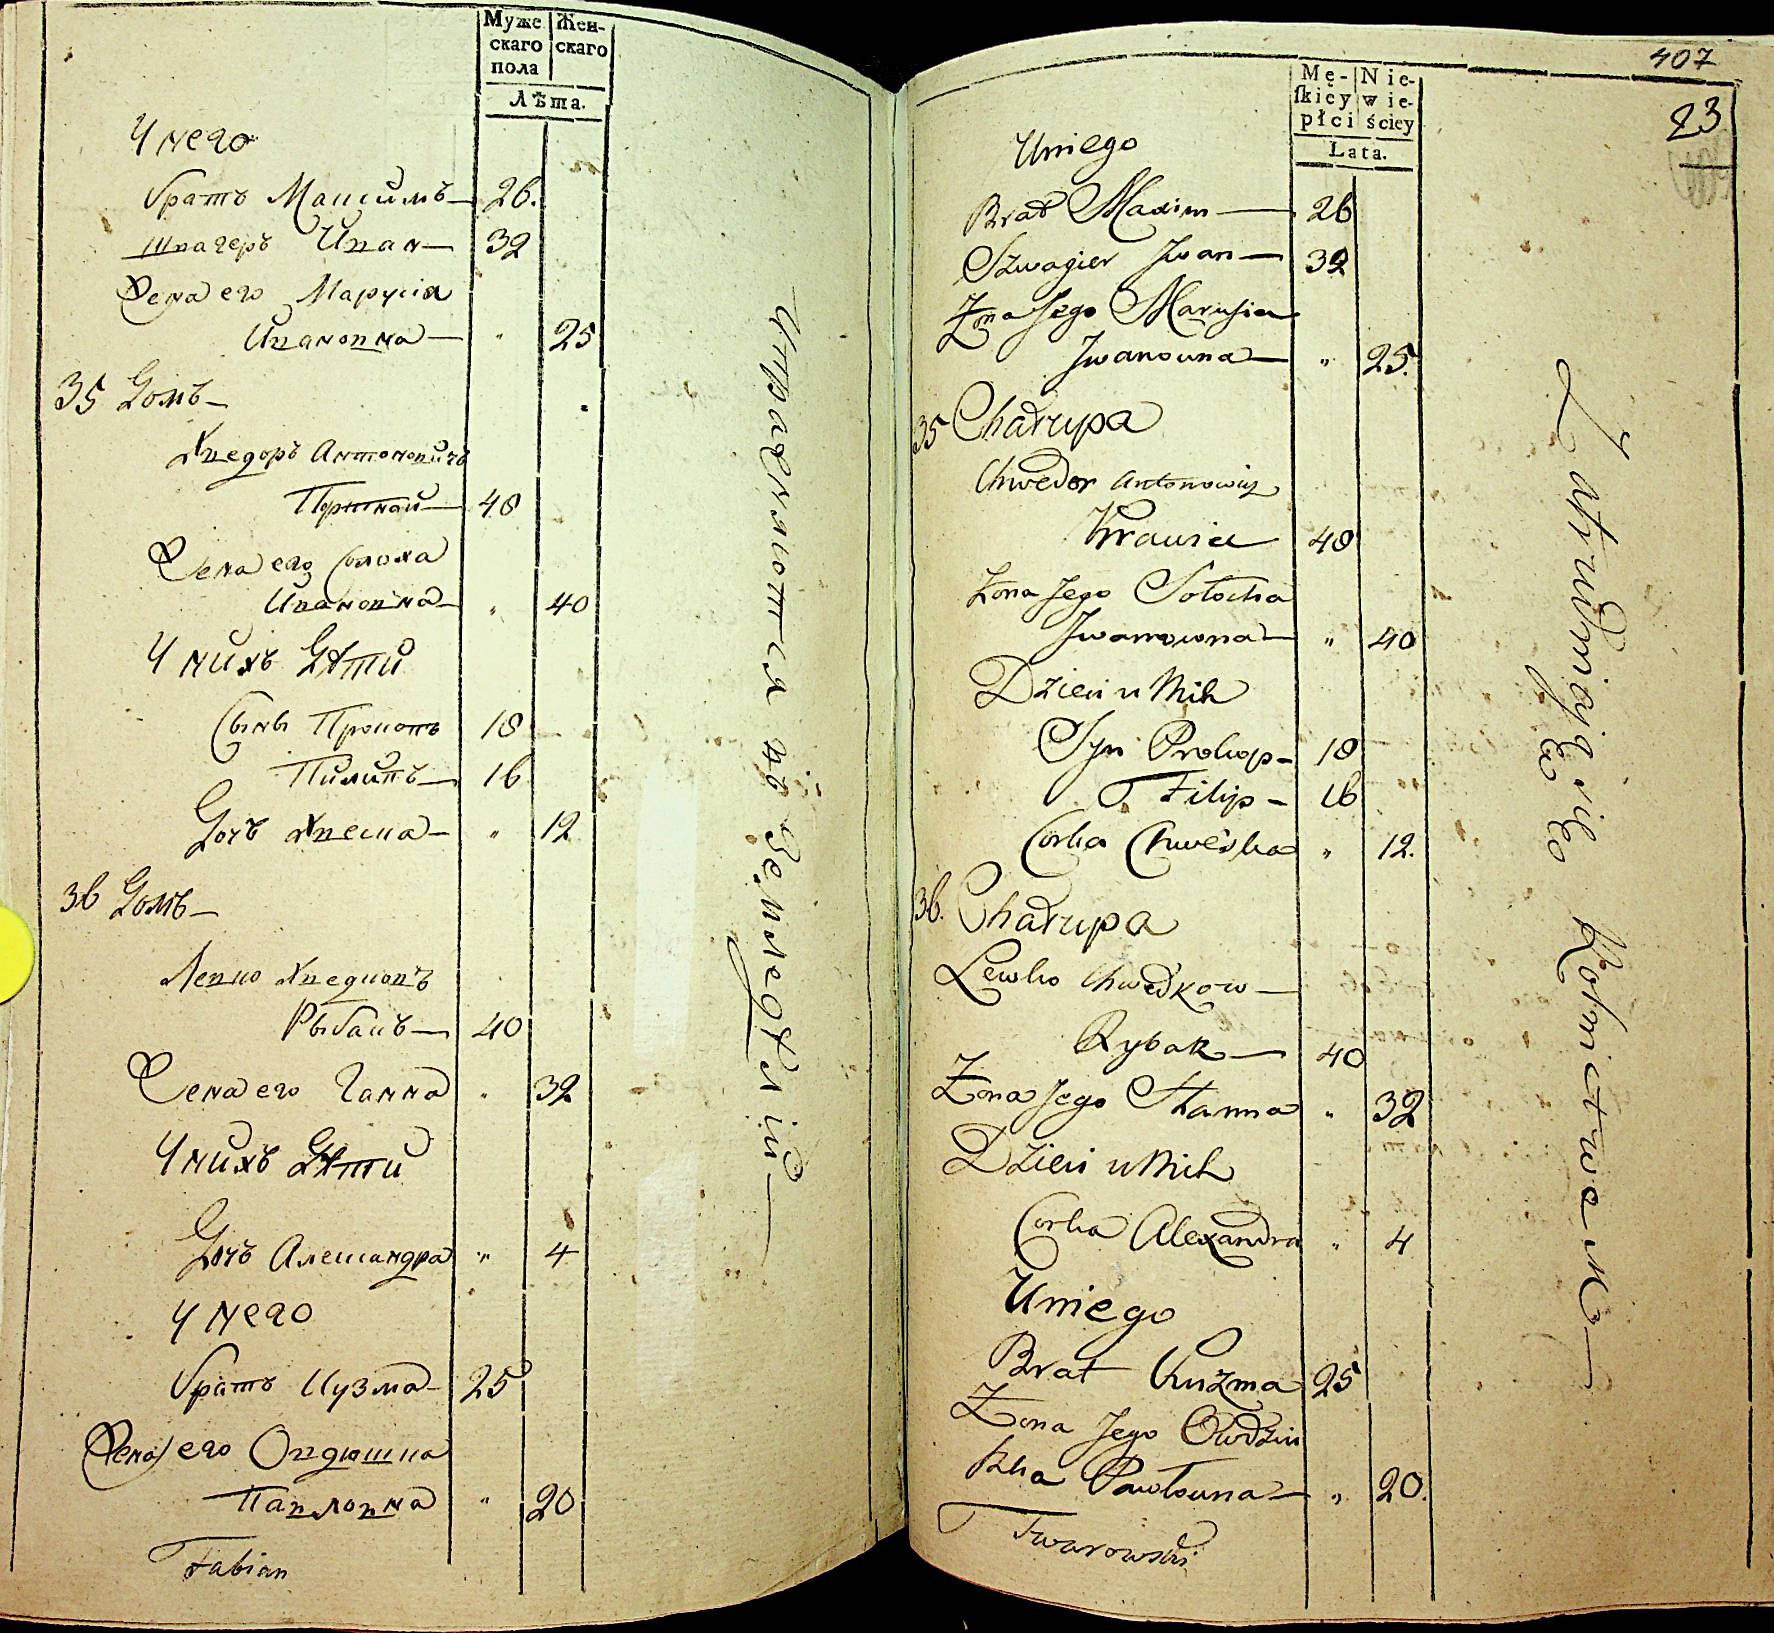 Муже
скаго
пола
Жен-
скаго
Лѣта.
У него
братъ Максимъ — 26.
швагеръ Иван — 32
Жена его Маруся
Ивановна — " 25
35 Домъ —
Хведоръ Антоновичъ
Портной — 48
Жена его Солоха
Ивановна — " 40
У нихъ Дѣти
Сынъ Прокопъ 18
Пилипъ — 16
Дочь Хвеска — " 12
36 Домъ —
Левко Хведковъ
Рыбакъ — 40
Жена его Ганна " 32
У нихъ Дѣти
Дочь Александра " 4
У него
братъ Кузма — 25
Жена его Овдюшка
Павловна " 20
Fabian
Упражняются въ Земледѣліи —
407
23
Mę-
skiey
płci
Nie-
wie-
ściey
Lata.
U niego
Brat Maxim — 26
Szwagier Jwan — 32
Żona Jego Marusia
Jwanowna — " 25.
35 Chałupa
Chwedor Antonowicz
Krawiec 48
Żona Jego Sołocha
Jwanowna — " 40
Dzieci u Nich
Syn Prokop — 18
Filip — 16
Corka Chweśka " 12.
36. Chałupa
Lewko Chwedkow —
Rybak — 40
Żona Jego Hanna " 32
Dzieci u Nich
Corka Alexandra " 4
U niego
Brat Kuzma 25
Żona Jego Owdziu
szka Pawłowna — " 20.
Twarowski
Zatrudniaią się Rolnictwem —